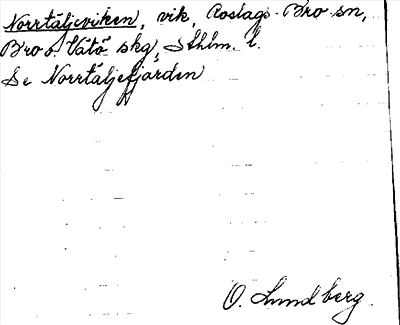 Norrtäljeviken, vik, Roslags-Bro sn,
Bro o. Vätö skg, Sthlm. l.
Se Norrtäljefjärden
O. Lundberg.